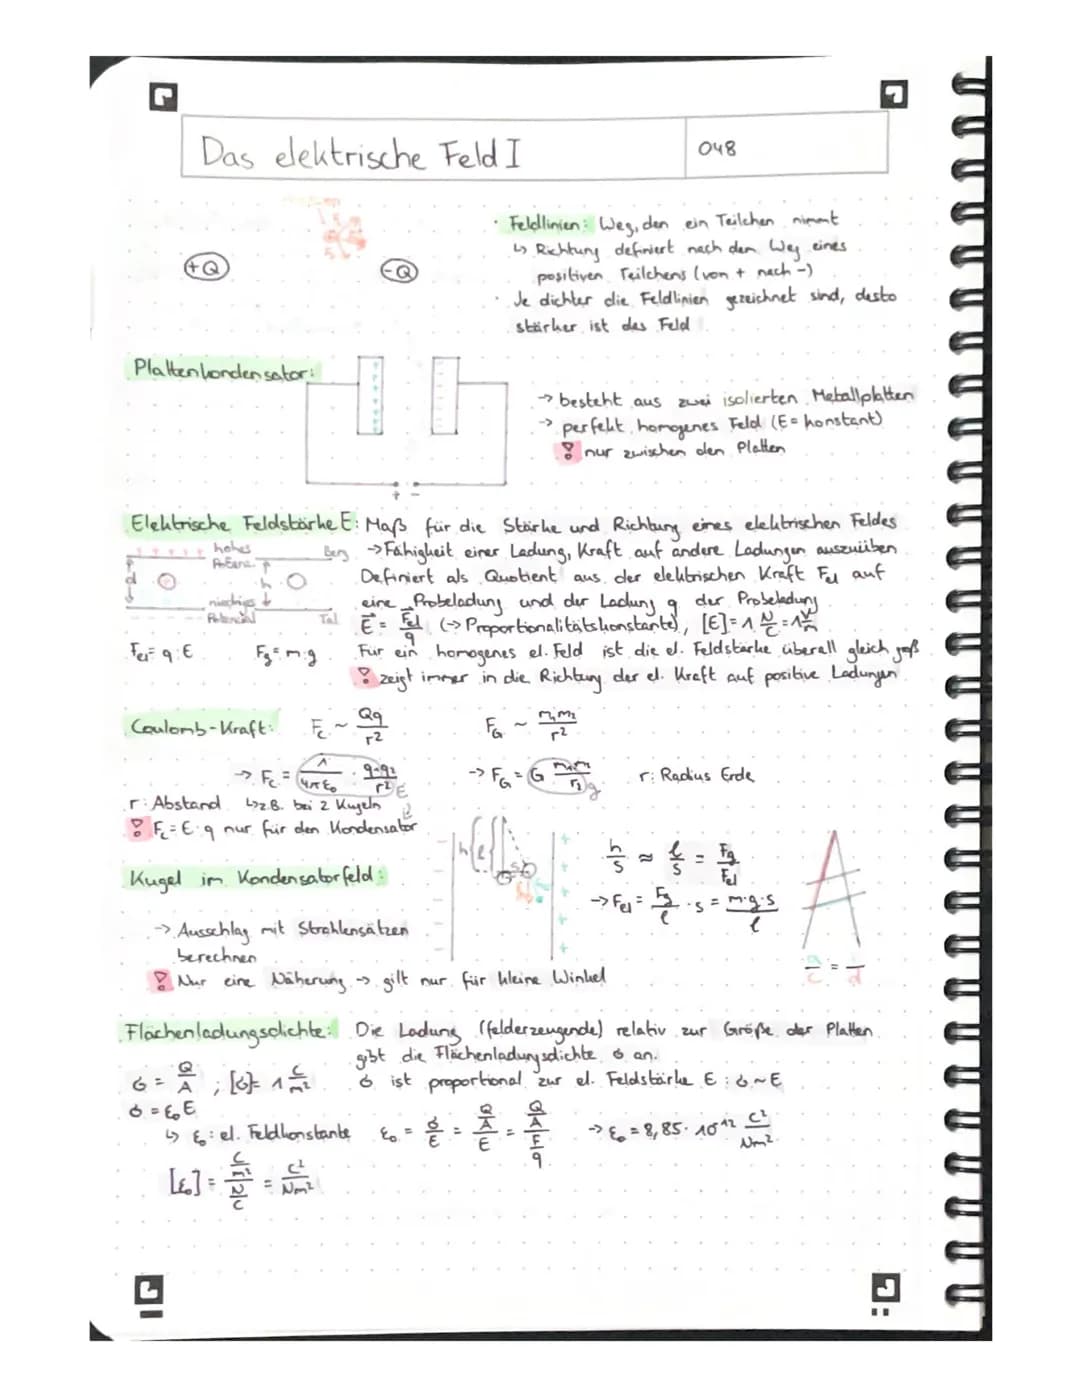 Das elektrische Feld I
048
+Q
-Q
· Feldlinien: Weg, den ein Teilchen nimmt
↳ Richtung definiert nach dem Weg eines
positiven Teilchens (von + nach -)
· Je dichter die Feldlinien gezeichnet sind, desto
stärker ist das Feld
Plattenkondensator:
+ -
→ besteht aus zwei isolierten Metallplatten
→ perfekt homogenes Feld (E = konstant)
nur zwischen den Platten
Elektrische Feldstärke E: Maß für die Stärke und Richtung eines elektrischen Feldes
→ Fähigkeit einer Ladung, Kraft auf andere Ladungen auszuüben
Definiert als Quotient aus der elektrischen Kraft Fel auf
eine Probeladung und der Ladung q der Probeladung
E = Fel/q (→ Proportionalitätskonstante), [E] = 1 N/C = 1 V/m
hohes
d
niedriges
Potential
Berg
h
Tal
Fel = q·E
Fg = m·g
Für ein homogenes el. Feld ist die el. Feldstärke überall gleich groß
zeigt immer in die Richtung der el. Kraft auf positive Ladungen
Coulomb-Kraft: Fc ~ Qq/r²
FG ~ m₁m₂/r²
→ Fc = 1/4πε₀ · q₁·q₂/r² E
→ FG = G m₁m₂/r² g
r: Radius Erde
r: Abstand ↳ z.B. bei 2 Kugeln
Fc = E·q nur für den Kondensator
Kugel im Kondensatorfeld:
h l s
h/s ≈ l/s = Fg/Fel
→ Fel = Fg/l · s = m·g·s/l
→ Ausschlag mit Strahlensätzen
berechnen
Nur eine Näherung → gilt nur für kleine Winkel
Flächenladungsdichte: Die Ladung (felderzeugende) relativ zur Größe der Platten
gibt die Flächenladungsdichte σ an.
σ = Q/A ; [σ] = 1 C/m²
σ ist proportional zur el. Feldstärke E : σ ~ E
σ = ε₀E
↳ ε₀: el. Feldkonstante ε₀ = σ/E = (Q/A)/E = (Q/A)/(F/q) → ε₀ = 8,85·10⁻¹² C²/Nm²
[ε₀] = (C/m²)/(N/C) = C²/Nm²